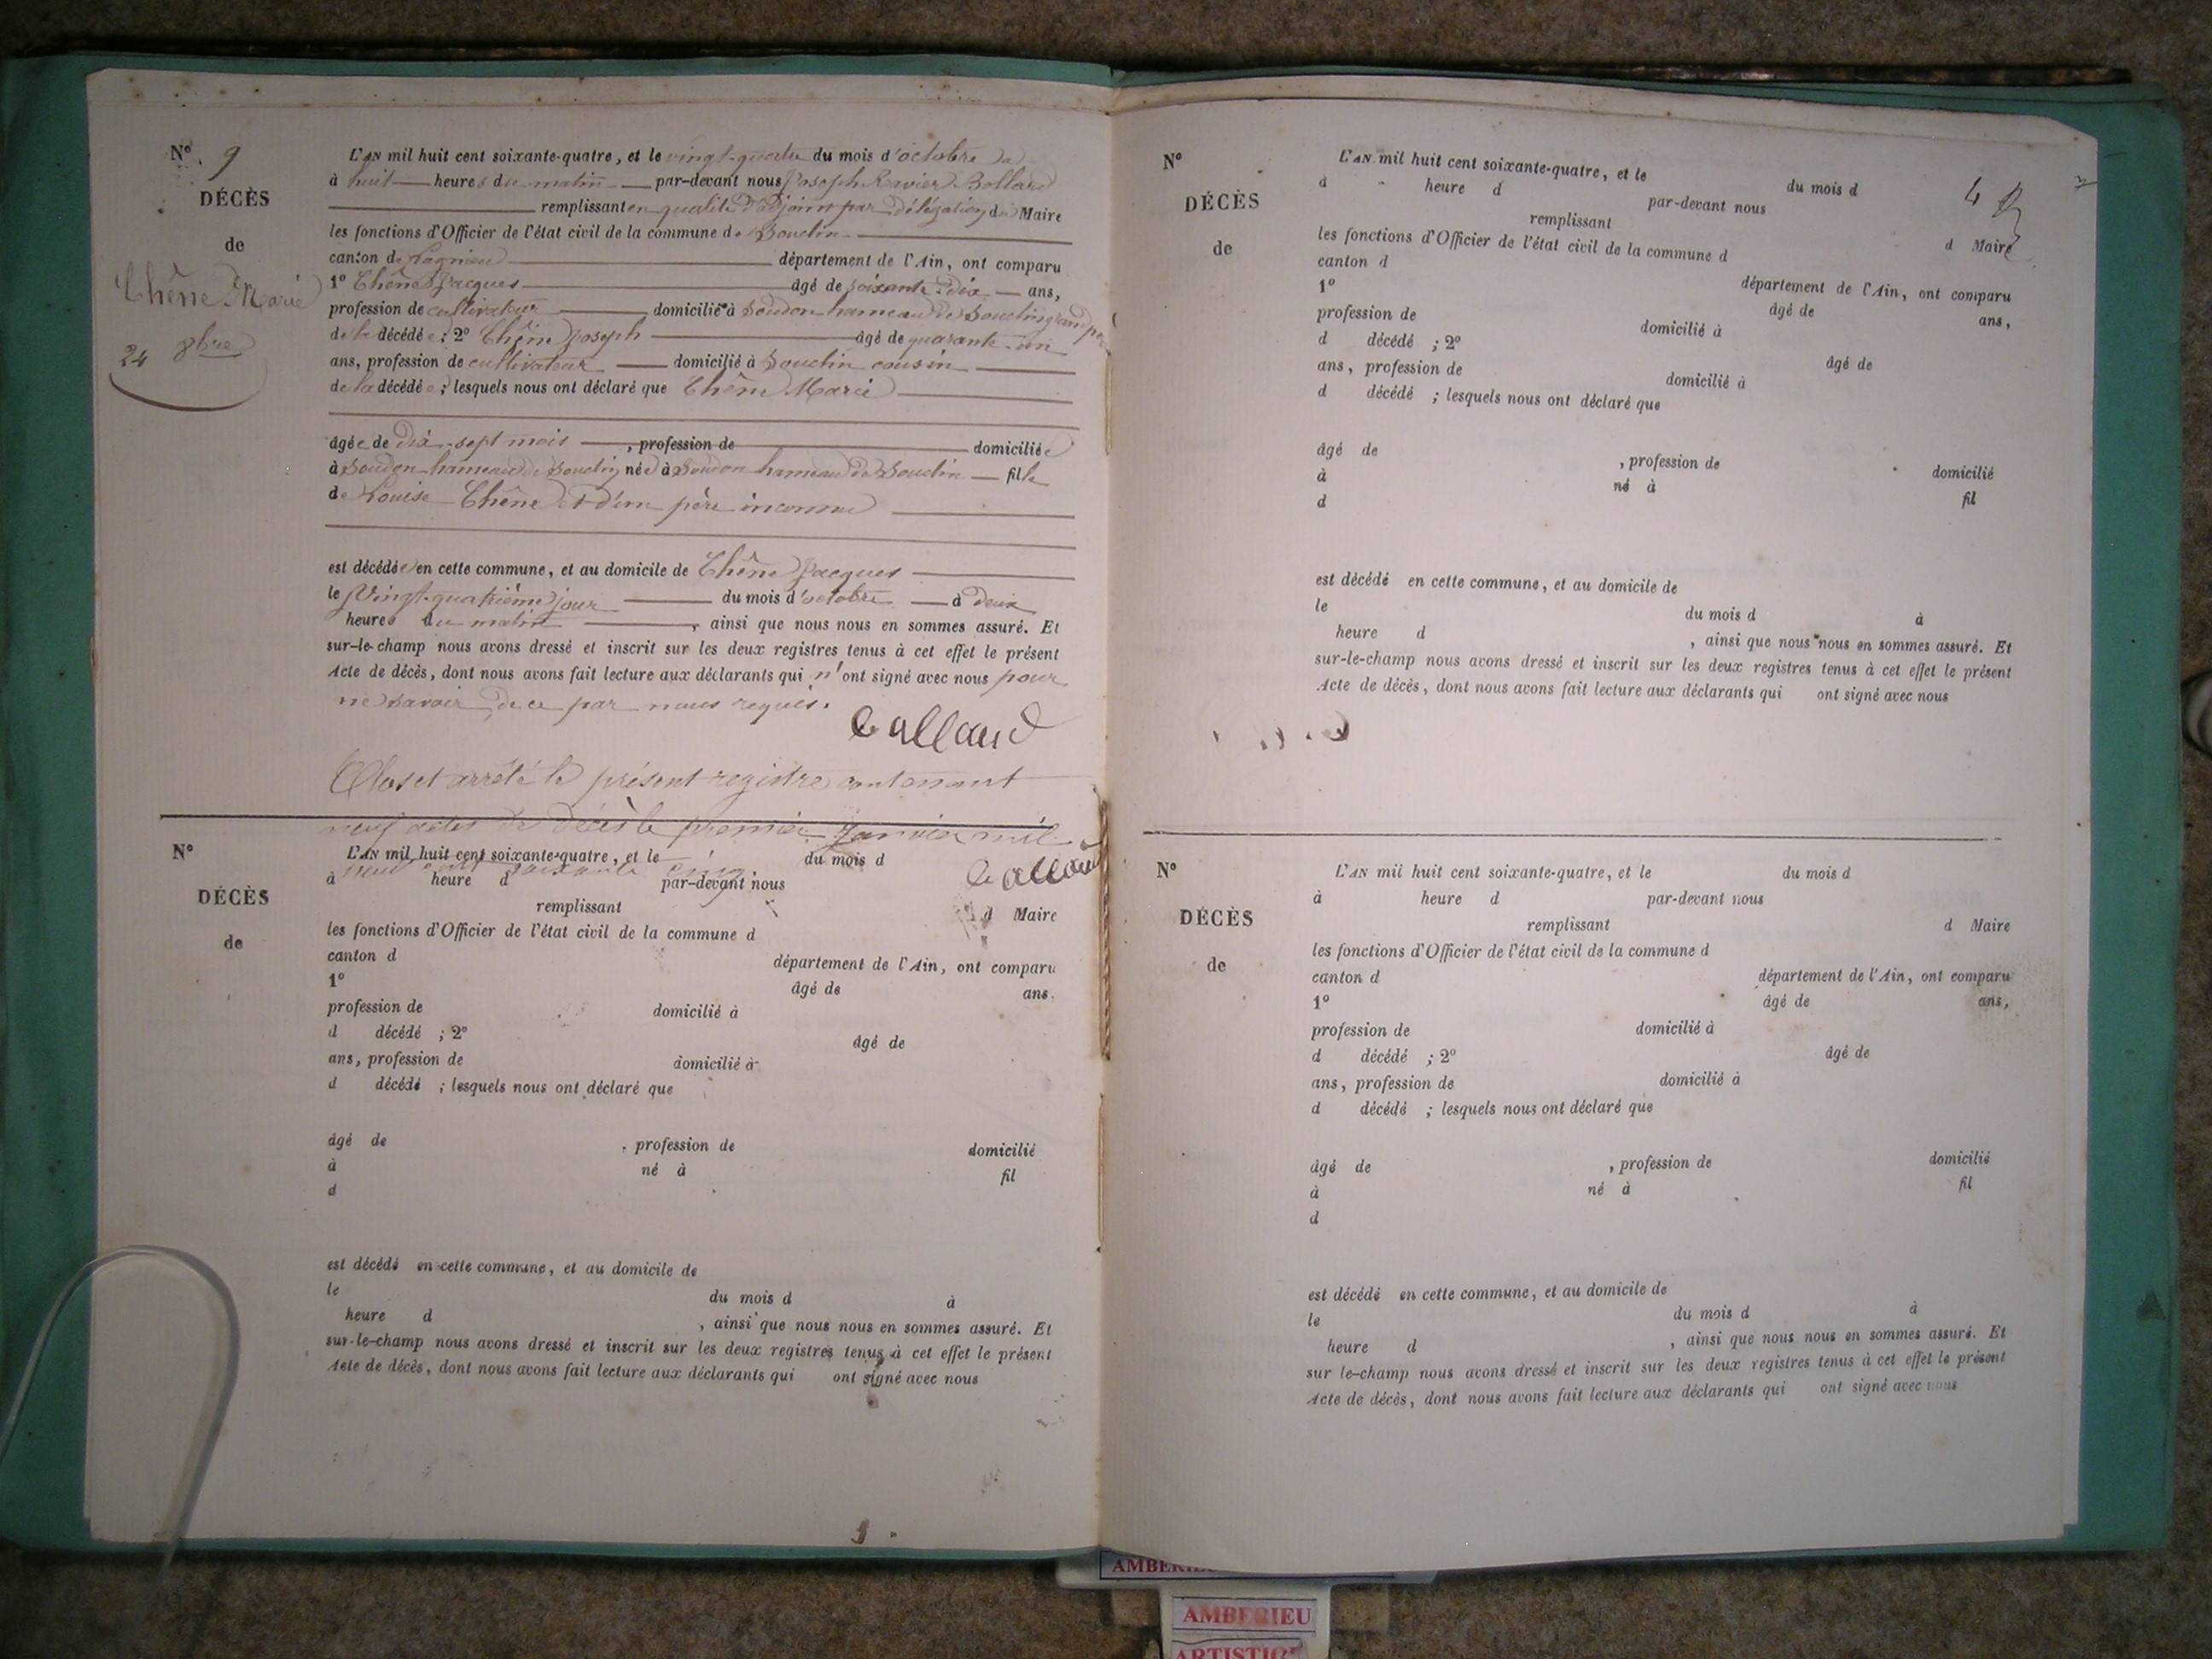 N° 9
DÉCÈS
de
Chêne Marie
24 8bre
L'AN mil huit cent soixante-quatre, et le vingt-quatre du mois d'octobre
à huit heures du matin par-devant nous Joseph Xavier Ballard
remplissant en qualité d'adjoint par délégation du Maire
les fonctions d'Officier de l'état civil de la commune de Souclin
canton de Lagnieu département de l'Ain, ont comparu
1° Chêne Jacques âgé de soixante-dix ans,
profession de cultivateur domicilié à Soudon hameau de Souclin grand père
de la décédée ; 2° Chêne Joseph âgé de quarante-un
ans, profession de cultivateur domicilié à Souclin cousin
de la décédée ; lesquels nous ont déclaré que Chêne Marie
âgée de dix-sept mois , profession de domiciliée
à Soudon hameau de Souclin née à Soudon hameau de Souclin fille
de Louise Chêne et d'un père inconnu
est décédée en cette commune, et au domicile de Chêne Jacques
le Vingt-quatrième jour du mois d'octobre à deux
heures du matin , ainsi que nous nous en sommes assuré. Et
sur-le-champ nous avons dressé et inscrit sur les deux registres tenus à cet effet le présent
Acte de décès, dont nous avons fait lecture aux déclarants qui n'ont signé avec nous pour
ne savoir de ce par nous requis.
Clos et arrêté le présent registre contenant
neuf actes de décès le premier Janvier mil
soixante cinq.
N°
DÉCÈS
de
L'AN mil huit cent soixante-quatre, et le du mois d
à heure d par-devant nous
remplissant d Maire
les fonctions d'Officier de l'état civil de la commune d
canton d département de l'Ain, ont comparu
1° âgé de ans,
profession de domicilié à
d décédé ; 2° âgé de
ans, profession de domicilié à
d décédé ; lesquels nous ont déclaré que
âgé de , profession de domicilié
à né à fil
d
est décédé en cette commune, et au domicile de
le du mois d à
heure d , ainsi que nous nous en sommes assuré. Et
sur-le-champ nous avons dressé et inscrit sur les deux registres tenus à cet effet le présent
Acte de décès, dont nous avons fait lecture aux déclarants qui ont signé avec nous
4
N°
DÉCÈS
de
L'AN mil huit cent soixante-quatre, et le du mois d
à heure d par-devant nous
remplissant d Maire
les fonctions d'Officier de l'état civil de la commune d
canton d département de l'Ain, ont comparu
1° âgé de ans,
profession de domicilié à
d décédé ; 2° âgé de
ans, profession de domicilié à
d décédé ; lesquels nous ont déclaré que
âgé de , profession de domicilié
à né à fil
d
est décédé en cette commune, et au domicile de
le du mois d à
heure d , ainsi que nous nous en sommes assuré. Et
sur-le-champ nous avons dressé et inscrit sur les deux registres tenus à cet effet le présent
Acte de décès, dont nous avons fait lecture aux déclarants qui ont signé avec nous
N°
DÉCÈS
de
L'AN mil huit cent soixante-quatre, et le du mois d
à heure d par-devant nous
remplissant d Maire
les fonctions d'Officier de l'état civil de la commune d
canton d département de l'Ain, ont comparu
1° âgé de ans,
profession de domicilié à
d décédé ; 2° âgé de
ans, profession de domicilié à
d décédé ; lesquels nous ont déclaré que
âgé de , profession de domicilié
à né à fil
d
est décédé en cette commune, et au domicile de
le du mois d à
heure d , ainsi que nous nous en sommes assuré. Et
sur le-champ nous avons dressé et inscrit sur les deux registres tenus à cet effet le présent
Acte de décès, dont nous avons fait lecture aux déclarants qui ont signé avec nous
AMBERIEU